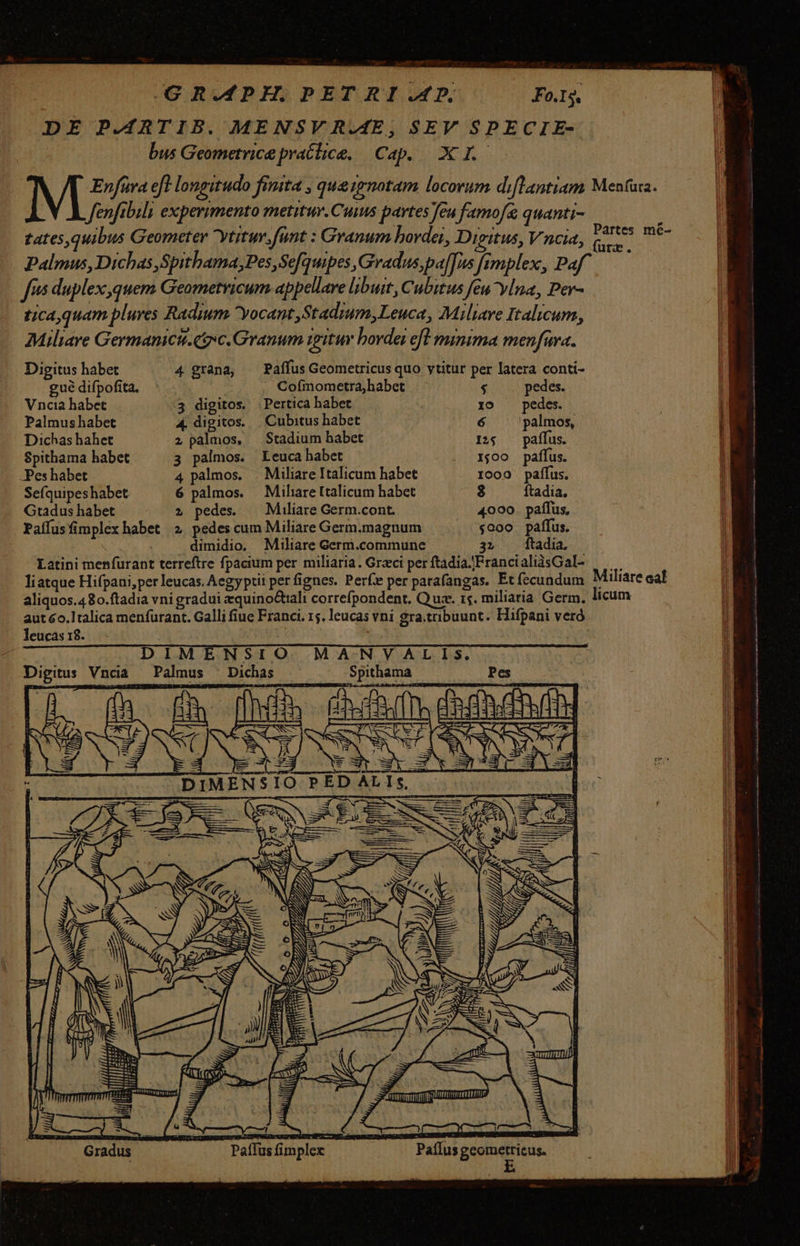 GRAPH. PETRI AP. Fo.15.
DE PARTIB. MENSVRAE, SEV SPECIE-
bus Geometricæ practice. Cap. XI.
MEnſura eſt longitudo finita, quæ ignotam locorum diſtantiam Menſura.
ſenſibili experimento metitur. Cuius partes ſeu famoſæ quanti-
tates, quibus Geometer vtitur, ſunt: Granum hordei, Digitus, Vncia, Partes mē-
ſuræ.
Palmus, Dichas, Spithama, Pes, Seſquipes, Gradus, paſſus ſimplex, Paſ
ſus duplex, quem Geometricum appellare libuit, Cubitus ſeu vlna, Per-
tica, quam plures Radium vocant, Stadium, Leuca, Miliare Italicum,
Miliare Germanicū. &c. Granum igitur hordei eſt minima menſura.
Digitus habet 4 grana, Paſſus Geometricus quo vtitur per latera conti-
guè diſpoſita. Coſmometra, habet 5 pedes.
Vncia habet 3 digitos. Pertica habet 10 pedes.
Palmus habet 4 digitos. Cubitus habet 6 palmos,
Dichas habet 2 palmos. Stadium habet 125 paſſus.
Spithama habet 3 palmos. Leuca habet 1500 paſſus.
Pes habet 4 palmos. Miliare Italicum habet 1000 paſſus.
Seſquipes habet 6 palmos. Miliare Italicum habet 8 ſtadia.
Gradus habet 2 pedes. Miliare Germ.cont. 4000 paſſus.
Paſſus ſimplex habet 2 pedes cum Miliare Germ.magnum 5000 paſſus.
dimidio. Miliare Germ.commune 32 ſtadia.
Latini menſurant terreſtre ſpacium per miliaria. Græci per ſtadia. Franci aliàs Gal-
li atque Hiſpani, per leucas. Aegyptii per ſignes. Perſæ per paraſangas. Et ſecundum Miliare gal
aliquos. 480. ſtadia vni gradui æquinoctiali correſpondent. Quæ. 15. miliaria Germ. licum
aut 60. Italica menſurant. Galli ſiue Franci. 15. leucas vni gra. tribuunt. Hiſpani verò
leucas 18.
DIMENSIO MANVALIS.
Digitus Vncia Palmus Dichas Spithama Pes
DIMENSIO PEDALIS.
Gradus Paſſus ſimplex Paſſus geometricus.
E